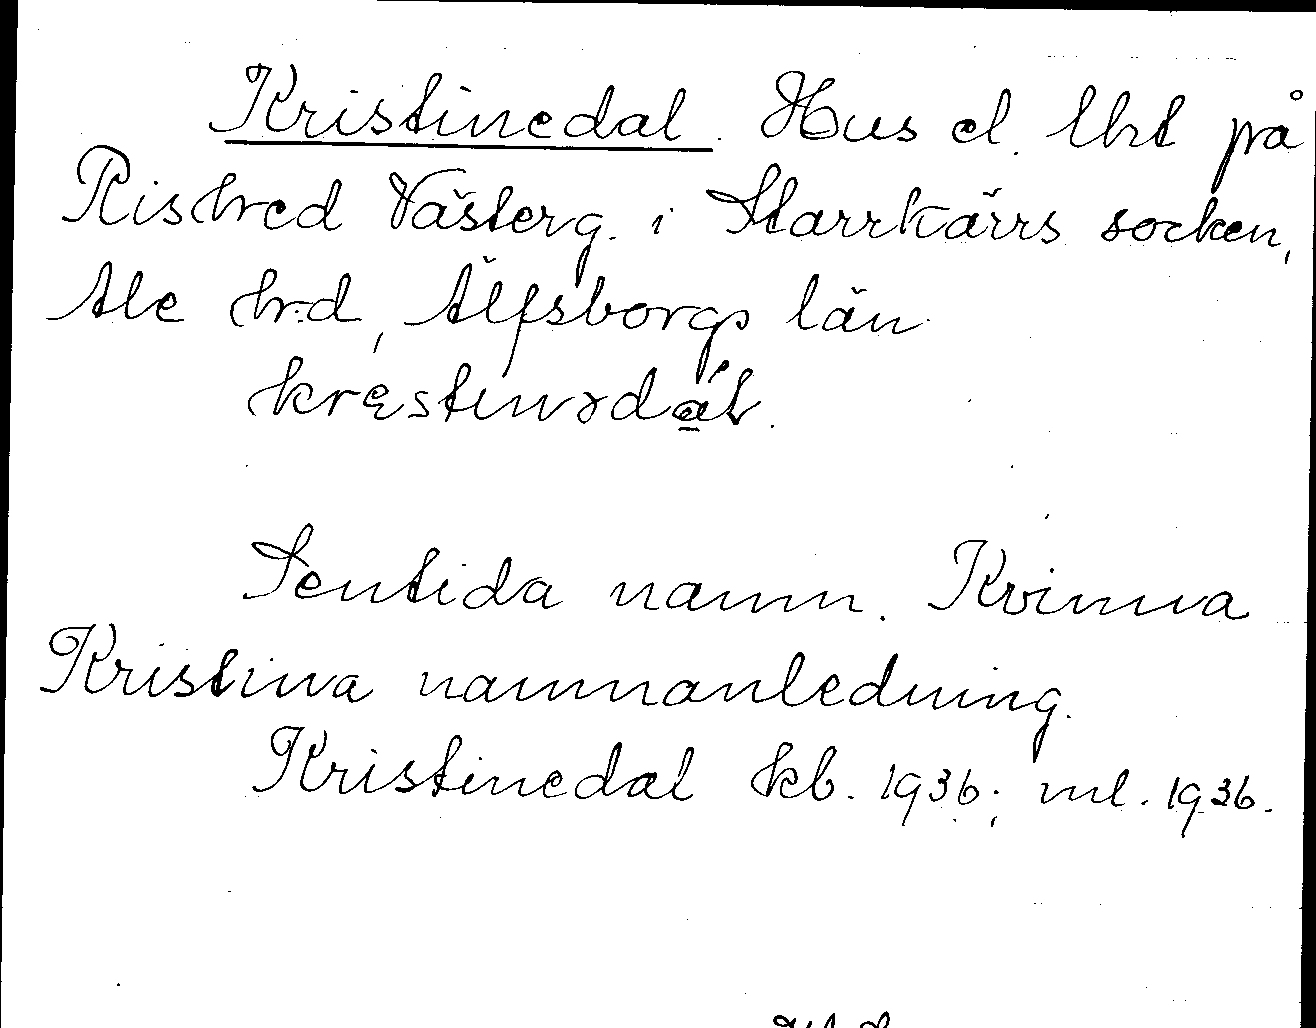 Kristinedal. Hus el. lht på
Ristred Västerg. i Starrkärrs socken,
Ale hrd, Älfsborgs län
Sentida namn. Kvinna
Kristina namnanledning.
Kristinedal kb. 1936; ml. 1936.